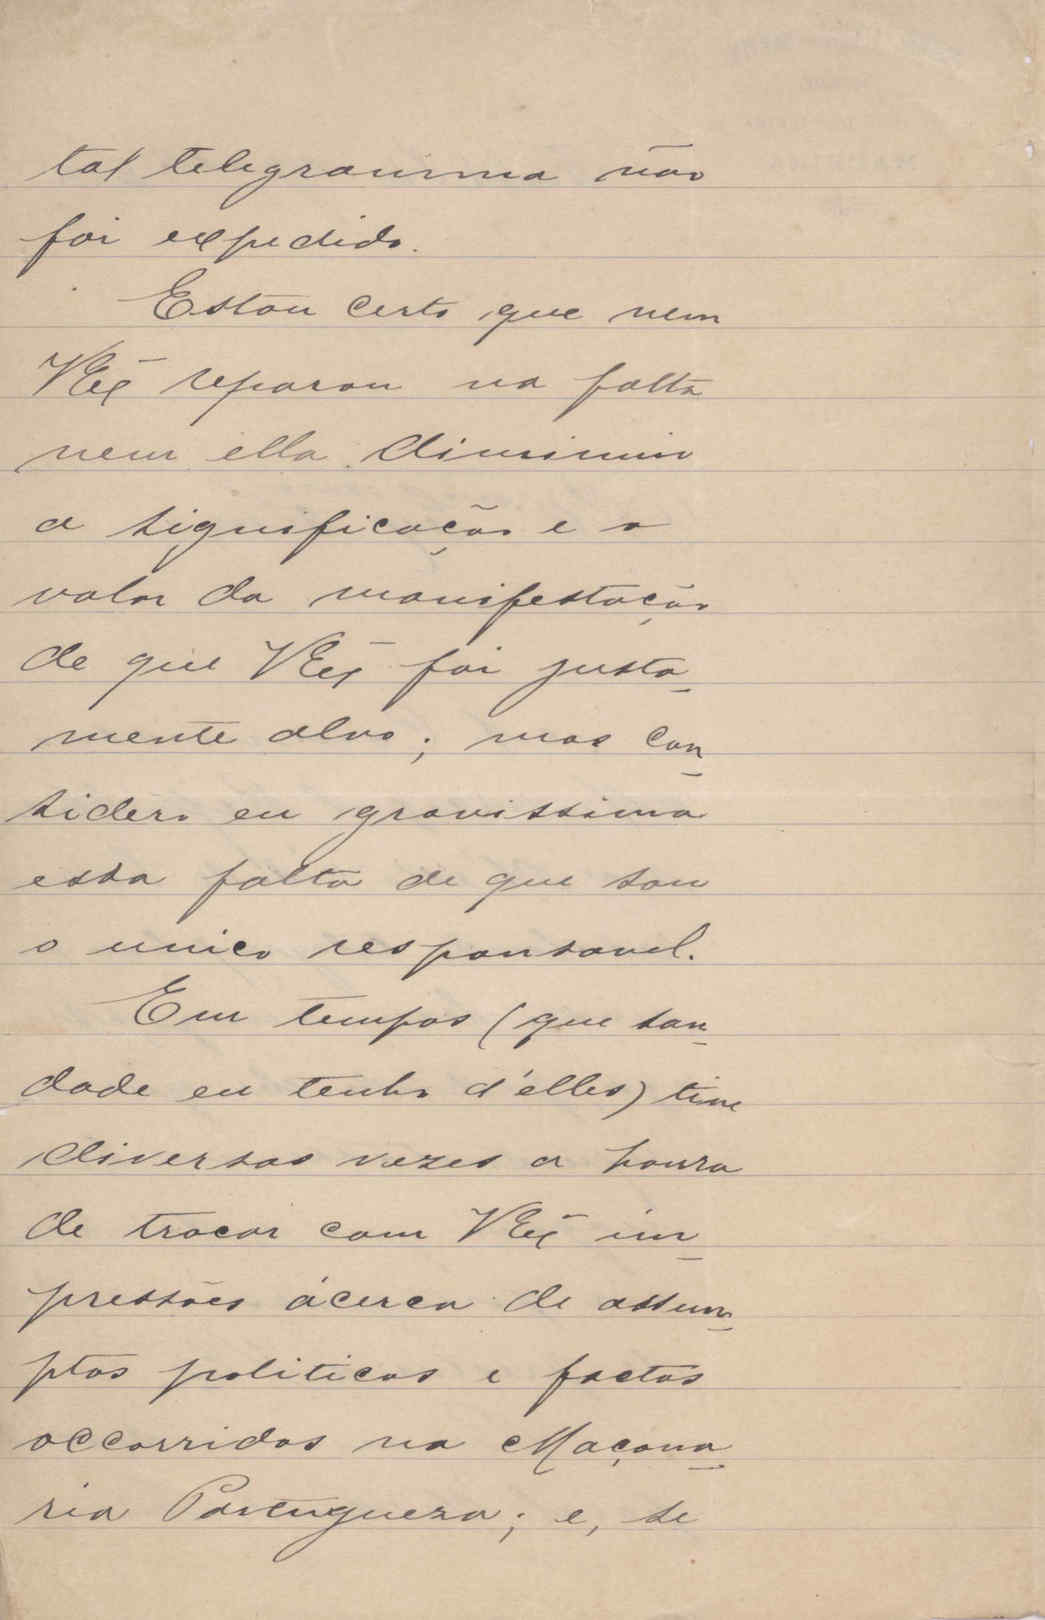 tal telegramma não
foi expedido.
Estou certo que nem
VExª reparou na falta
nem ella diminuiu
a significação e o
valor da manifestação
de que VExª foi justa-
mente alvo; mas con-
sidero eu gravissima
essa falta de que sou
o unico responsavel.
Em tempos (que sau-
dade eu tenho d'elles) tive
diversas vezes a honra
de trocar com VExª im-
pressões ácerca de assum-
ptos politicos e factos
occorridos na Maçona-
ria Portugueza; e, se